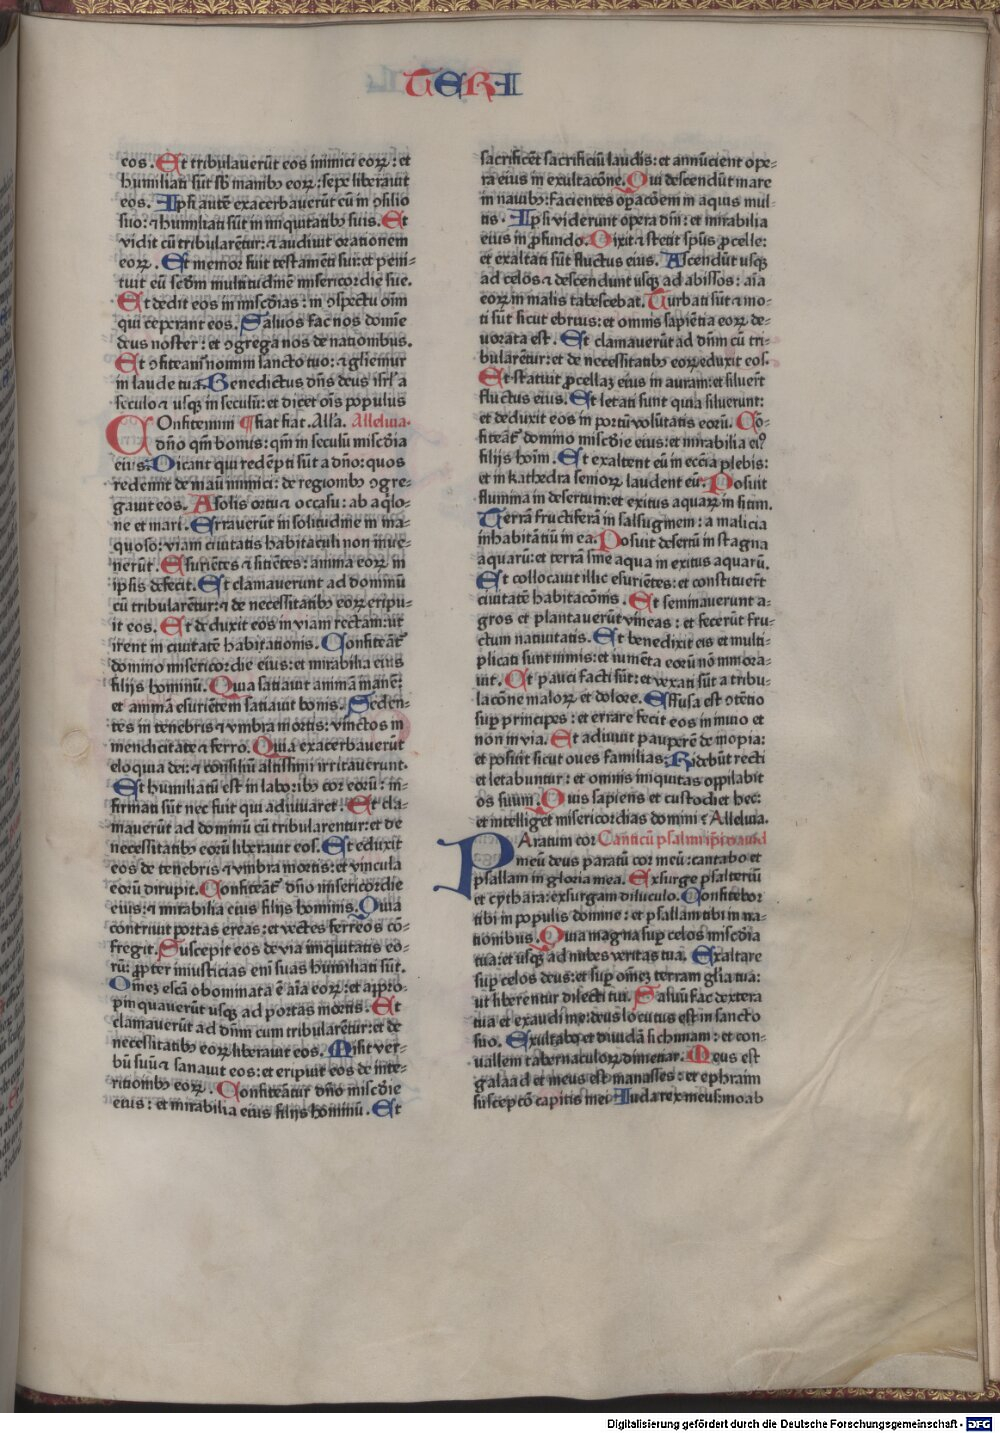 TERI
eos. Et tribulauerūt eos inimici eoꝝ: et
humiliati sūt sb manibꝫ eoꝝ: sepe liberauit
eos. Ipsi autē exacerbauerūt eū in ꝯsilio
suo: ⁊ humiliati sūt in iniquitatibꝫ suis. Et
vidit cū tribularētur: ⁊ audiuit orationem
eoꝝ. Et memor fuit testamēti sui: et peni-
tuit eū scdm multitudinē misericordie sue.
Et dedit eos in miscdias: in ꝯspectu oīm
qui ceperant eos. Saluos fac nos domīe
deus noster: et ꝯgrega nos de nationibus.
Et ꝯfiteam nomini sancto tuo: ⁊ gliemur
in laude tua. Benedictus dn̄s deus isrl' a
seculo ⁊ usqꝫ in seculū: et dicet oīs populus
COnfitemini fiat fiat. All'a. Alleluia.
dn̄o qm̄ bonus: qm̄ in seculū miscdia
eius. Dicant qui redēpti sūt a dn̄o: quos
redemit de manū inimici: de regionibꝫ ꝯgre-
gauit eos. A solis ortu ⁊ occasu: ab aqlo-
ne et mari. Errauerūt in solitudine in ina-
quoso: viam ciuitatis habitaculi non inue-
nerūt. Esuriētes ⁊ sitiētes: anima eoꝝ in
ipsis defecit. Et clamauerunt ad dominū
cū tribularētur: ⁊ de necessitatibꝫ eoꝝ eripu-
it eos. Et deduxit eos in viam rectam: ut
irent in ciuitatē habitationis. Confiteāt
domino misericordie eius: et mirabilia eius
filijs hominū. Quia satiauit animā inanē:
et animā esuriētem satiauit bonis. Seden-
tes in tenebris ⁊ vmbra mortis: vinctos in
mendicitate ⁊ ferro. Quia exacerbauerūt
eloquia dei: ⁊ consiliū altissimi irritauerunt.
Et humiliatū est in laboribꝫ cor eorū: in-
firmati sūt nec fuit qui adiuuaret. Et cla-
mauerūt ad dominū cū tribularentur: et de
necessitatibꝫ eorū liberauit eos. Et eduxit
eos de tenebris ⁊ vmbra mortis: et vincula
eorū dirupit. Confiteāt dn̄o misericordie
eius: ⁊ mirabilia eius filijs hominis. Quia
contriuit portas ereas: et vectes ferreos cō-
fregit. Suscepit eos de via iniquitatis eo-
rū: ꝓpter iniusticias eni suas humiliati sūt.
Omez escā abominata ē aīa eoꝝ: et apro-
pinquauerūt usqꝫ ad portas mortis. Et
clamauerūt ad dn̄m cum tribularētur: et de
necessitatibꝫ eoꝝ liberauit eos. Misit ver-
bū suū ⁊ sanauit eos: et eripuit eos de inte-
ritionibꝫ eoꝝ. Confiteātur dn̄o miscdie
eius: et mirabilia eius filijs hominū. Et
sacrificēt sacrificiū laudis: et annūcient ope-
ra eius in exultacōne. Qui descendūt mare
in nauibꝫ: facientes opacōem in aquis mul-
tis. Ipsi viderunt opera dn̄i: et mirabilia
eius in ꝓfundo. Dixit ⁊ stetit spūs ꝓcelle:
et exaltati sūt fluctus eius. Ascendūt usqꝫ
ad celos ⁊ descendunt usqꝫ ad abissos: aīa
eoꝝ in malis tabescebat. Turbati sūt ⁊ mo-
ti sūt sicut ebrius: et omnis sapiētia eoꝝ de-
uorata est. Et clamauerūt ad dn̄m cū tri-
bularētur: et de necessitatibꝫ eoꝝ eduxit eos.
Et statuit ꝓcellaꝫ eius in auram: et siluerūt
fluctus eius. Et letati sunt quia siluerunt:
et deduxit eos in portū volūtatis eorū. Cō-
fiteāt domino miscdie eius: et mirabilia ei⁹
filijs hoīm. Et exaltent eū in ecc̄ia plebis:
et in kathedra senioꝝ laudent eū. Posuit
flumina in desertum: et exitus aquaꝝ in sitim.
Terrā fructiferā in salsuginem: a malicia
inhabitātiū in ea. Posuit desertū in stagna
aquarū: et terrā sine aqua in exitus aquarū.
Et collocauit illic esuriētes: et constituerūt
ciuitatē habitacōnis. Et seminauerunt a-
gros et plantauerūt vineas: et fecerūt fru-
ctum natiuitatis. Et benedixit eis et multi-
plicati sunt nimis: et iumēta eorū nō minora-
uit. Et pauci facti sūt: et vexati sūt a tribu-
lacōne maloꝝ et dolore. Effusa est ꝯtētio
sup principes: et errare fecit eos in inuio et
non in via. Et adiuuit pauperē de inopia:
et posuit sicut oues familias. Videbūt recti
et letabuntur: et omnis iniquitas oppilabit
os suum. Quis sapiens et custodiet hec:
et intelliget misericordias domini: Alleluia.
PAratum cor Canticū psalmi ipi dauid
meū deus paratū cor meū: cantabo et
psallam in gloria mea. Exsurge psalteriū
et cythara: exsurgam diluculo. Confitebor
tibi in populis domine: et psallam tibi in na-
tionibus. Quia magna sup celos miscdia
tua: et usqꝫ ad nubes veritas tua. Exaltare
sup celos deus: et sup omēz terram glia tua:
ut liberentur dilecti tui. Saluū fac dextera
tua et exaudi me: deus locutus est in sancto
suo. Exultabo et diuidā sichimam: et con-
uallem tabernaculoꝝ dimetiar. Meus est
galaad et meus est manasses: et ephraim
susceptō capitis mei. Iuda rex meus: moab
Digitalisierung gefördert durch die Deutsche Forschungsgemeinschaft - DFG